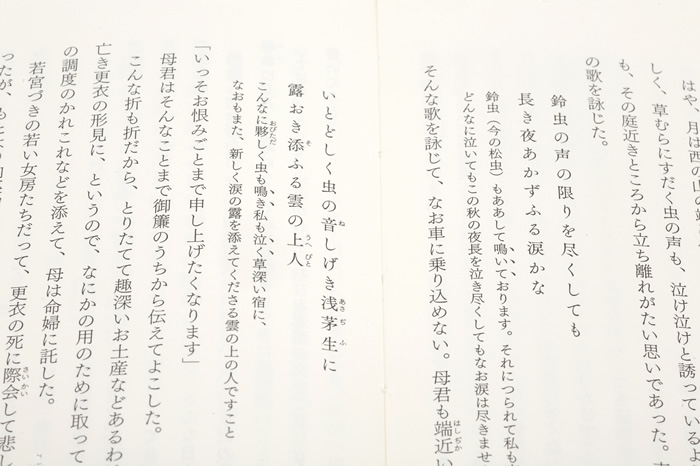 はや、月は西の山の端
しく、草むらにすだく虫の声も、泣け泣けと誘っているよ
も、その庭近きところから立ち離れがたい思いであった。
の歌を詠じた。
鈴虫の声の限りを尽くしても
長き夜あかずふる涙かな
鈴虫（今の松虫）もああして鳴いております。それにつられて私も
どんなに泣いてもこの秋の夜長を泣き尽くしてもなお涙は尽きませ
そんな歌を詠じて、なお車に乗り込めない。母君も端近い
いとどしく虫の音しげき浅茅生に
露おき添ふる雲の上人
こんなに夥しく虫も鳴き私も泣く草深い宿に、
なおもまた、新しく涙の露を添えてくださる雲の上の人ですこと
「いっそお恨みごとまで申し上げたくなります」
母君はそんなことまで御簾のうちから伝えてよこした。
こんな折も折だから、とりたてて趣深いお土産などあるわ
亡き更衣の形見に、というので、なにかの用のために取って
の調度のかれこれなどを添えて、母は命婦に託した。
若宮づきの若い女房たちだって、更衣の死に際会して悲し
ったが、もとより